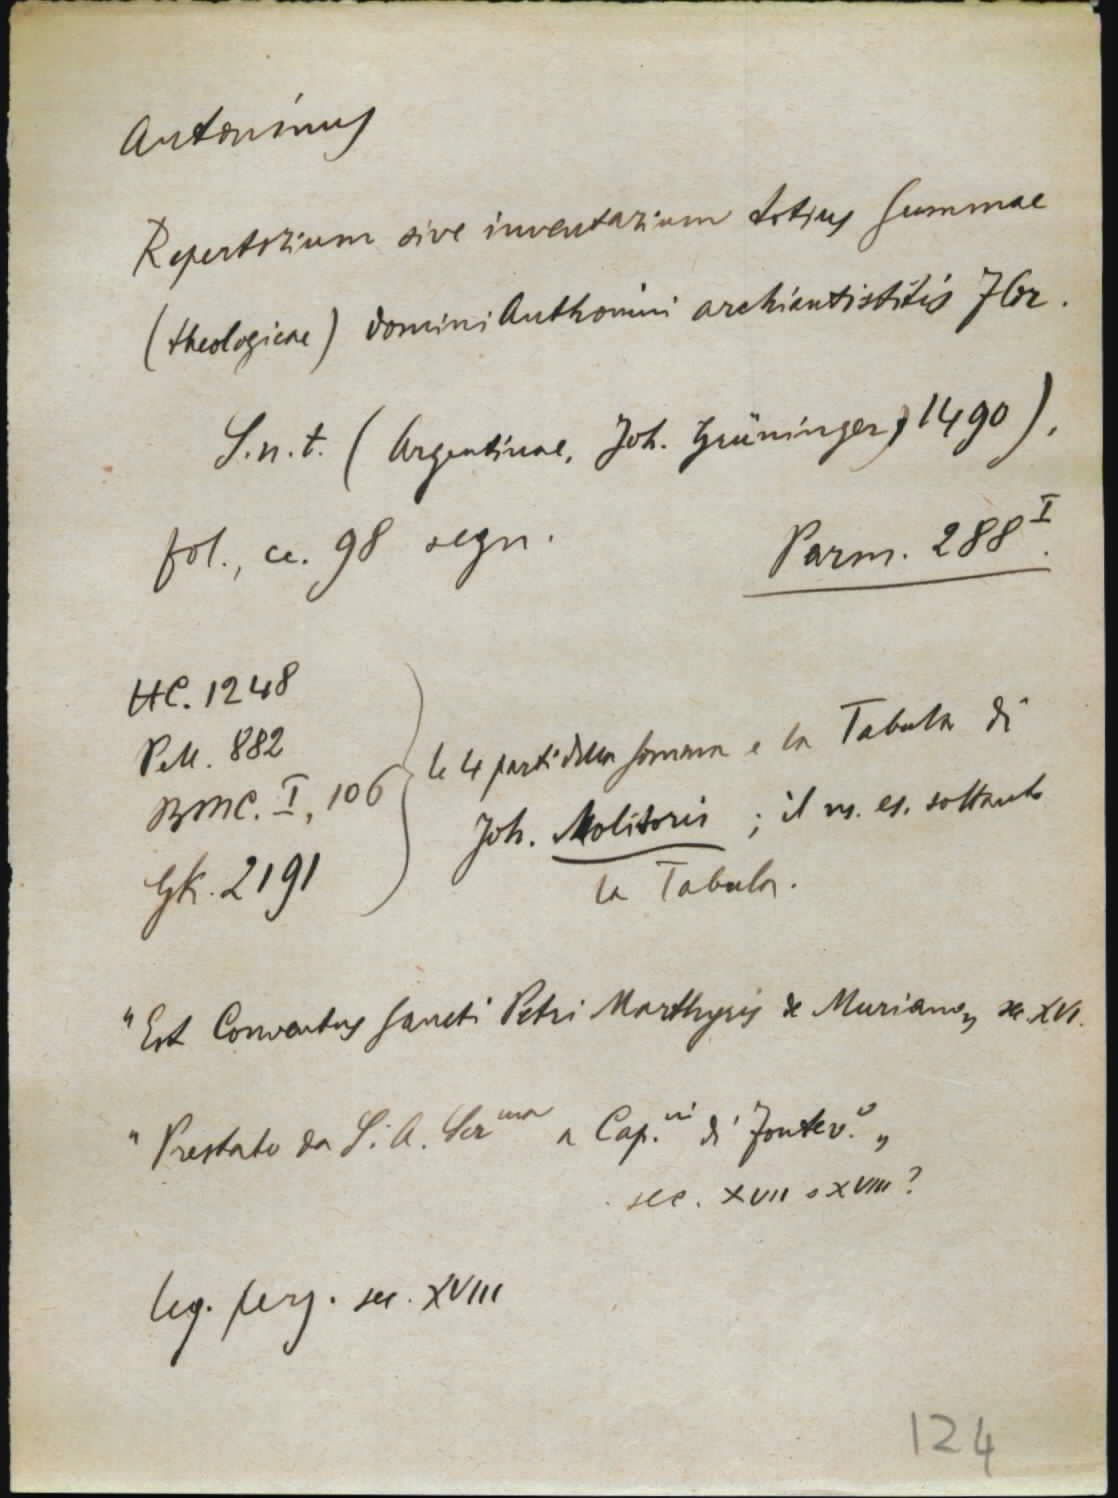 Antoninus
Repertorium sive inventarium totius Summae
(theologicae) domini Anthonini archiantistitis Flor.
S.n.t. (Argentinae, Joh. Grüninger, 1490),
fol., cc. 98 segn.
Parm. 288 I.
HC. 1248
Pell. 882
BMC. I, 106
GK. 2191
le 4 parti della somma e la Tabula di
Joh. Molitoris ; il ns. es. soltanto
la Tabula.
"Est Conventus Sancti Petri Marthyris de Muriano„ sec. XVI.
"Prestato da S. A. Ser.ma a Cap.ni di Fontev.o „
sec. XVII o XVIII?
leg. perg. sec. XVIII
124